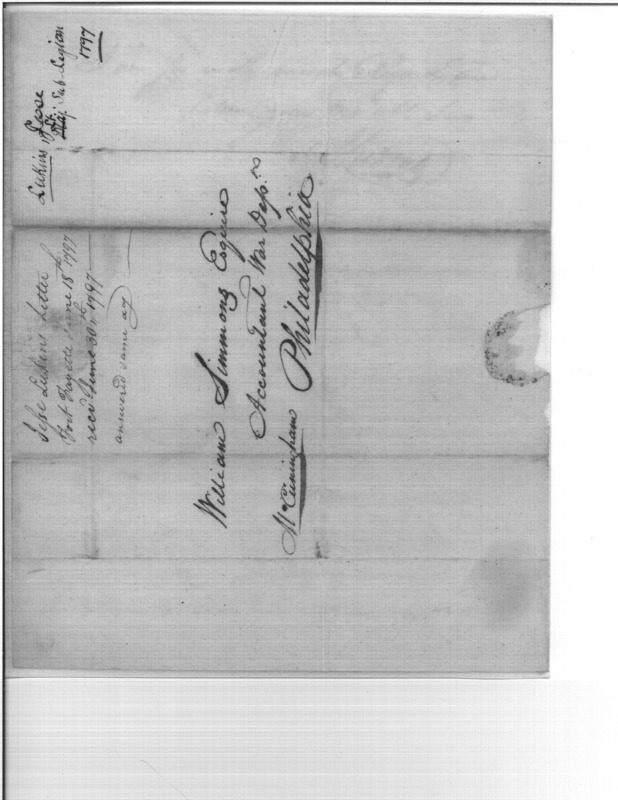 Lukins, Jesse
Lt. Sub-Legion
1797
Jesse Lukens Letter
Fort Fayette June 18th 1797
recd June 30th 1797
answered same day
William Simmons Esquire
Accountant War Dep.
Philadelphia
Mr Cuningham